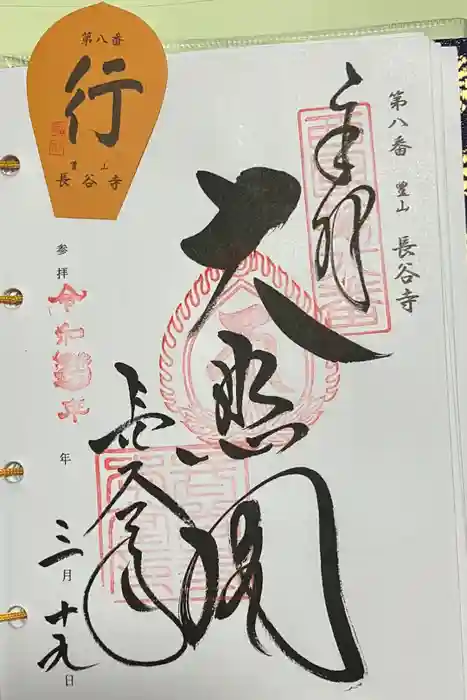 第八番 豊山 長谷寺
奉拝
大悲閣
長谷寺
参拝 令和 年 年 三月十九日
第八番
行
豊山
長谷寺